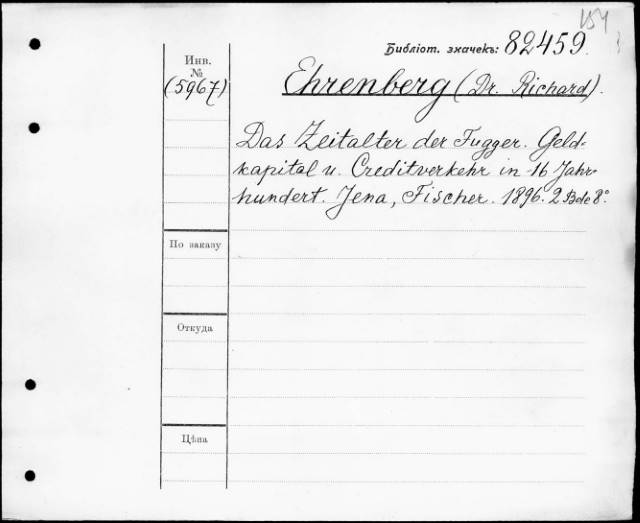 154
Библіот. значекъ: 82459.
Инв.
№
(5967)
Ehrenberg (Dr. Richard).
Das Zeitalter der Fugger. Geld-
kapital u. Creditverkehr in 16 Jahr-
hundert. Jena, Fischer. 1896. 2 Bde 8°.
По заказу
Откуда
Цѣна